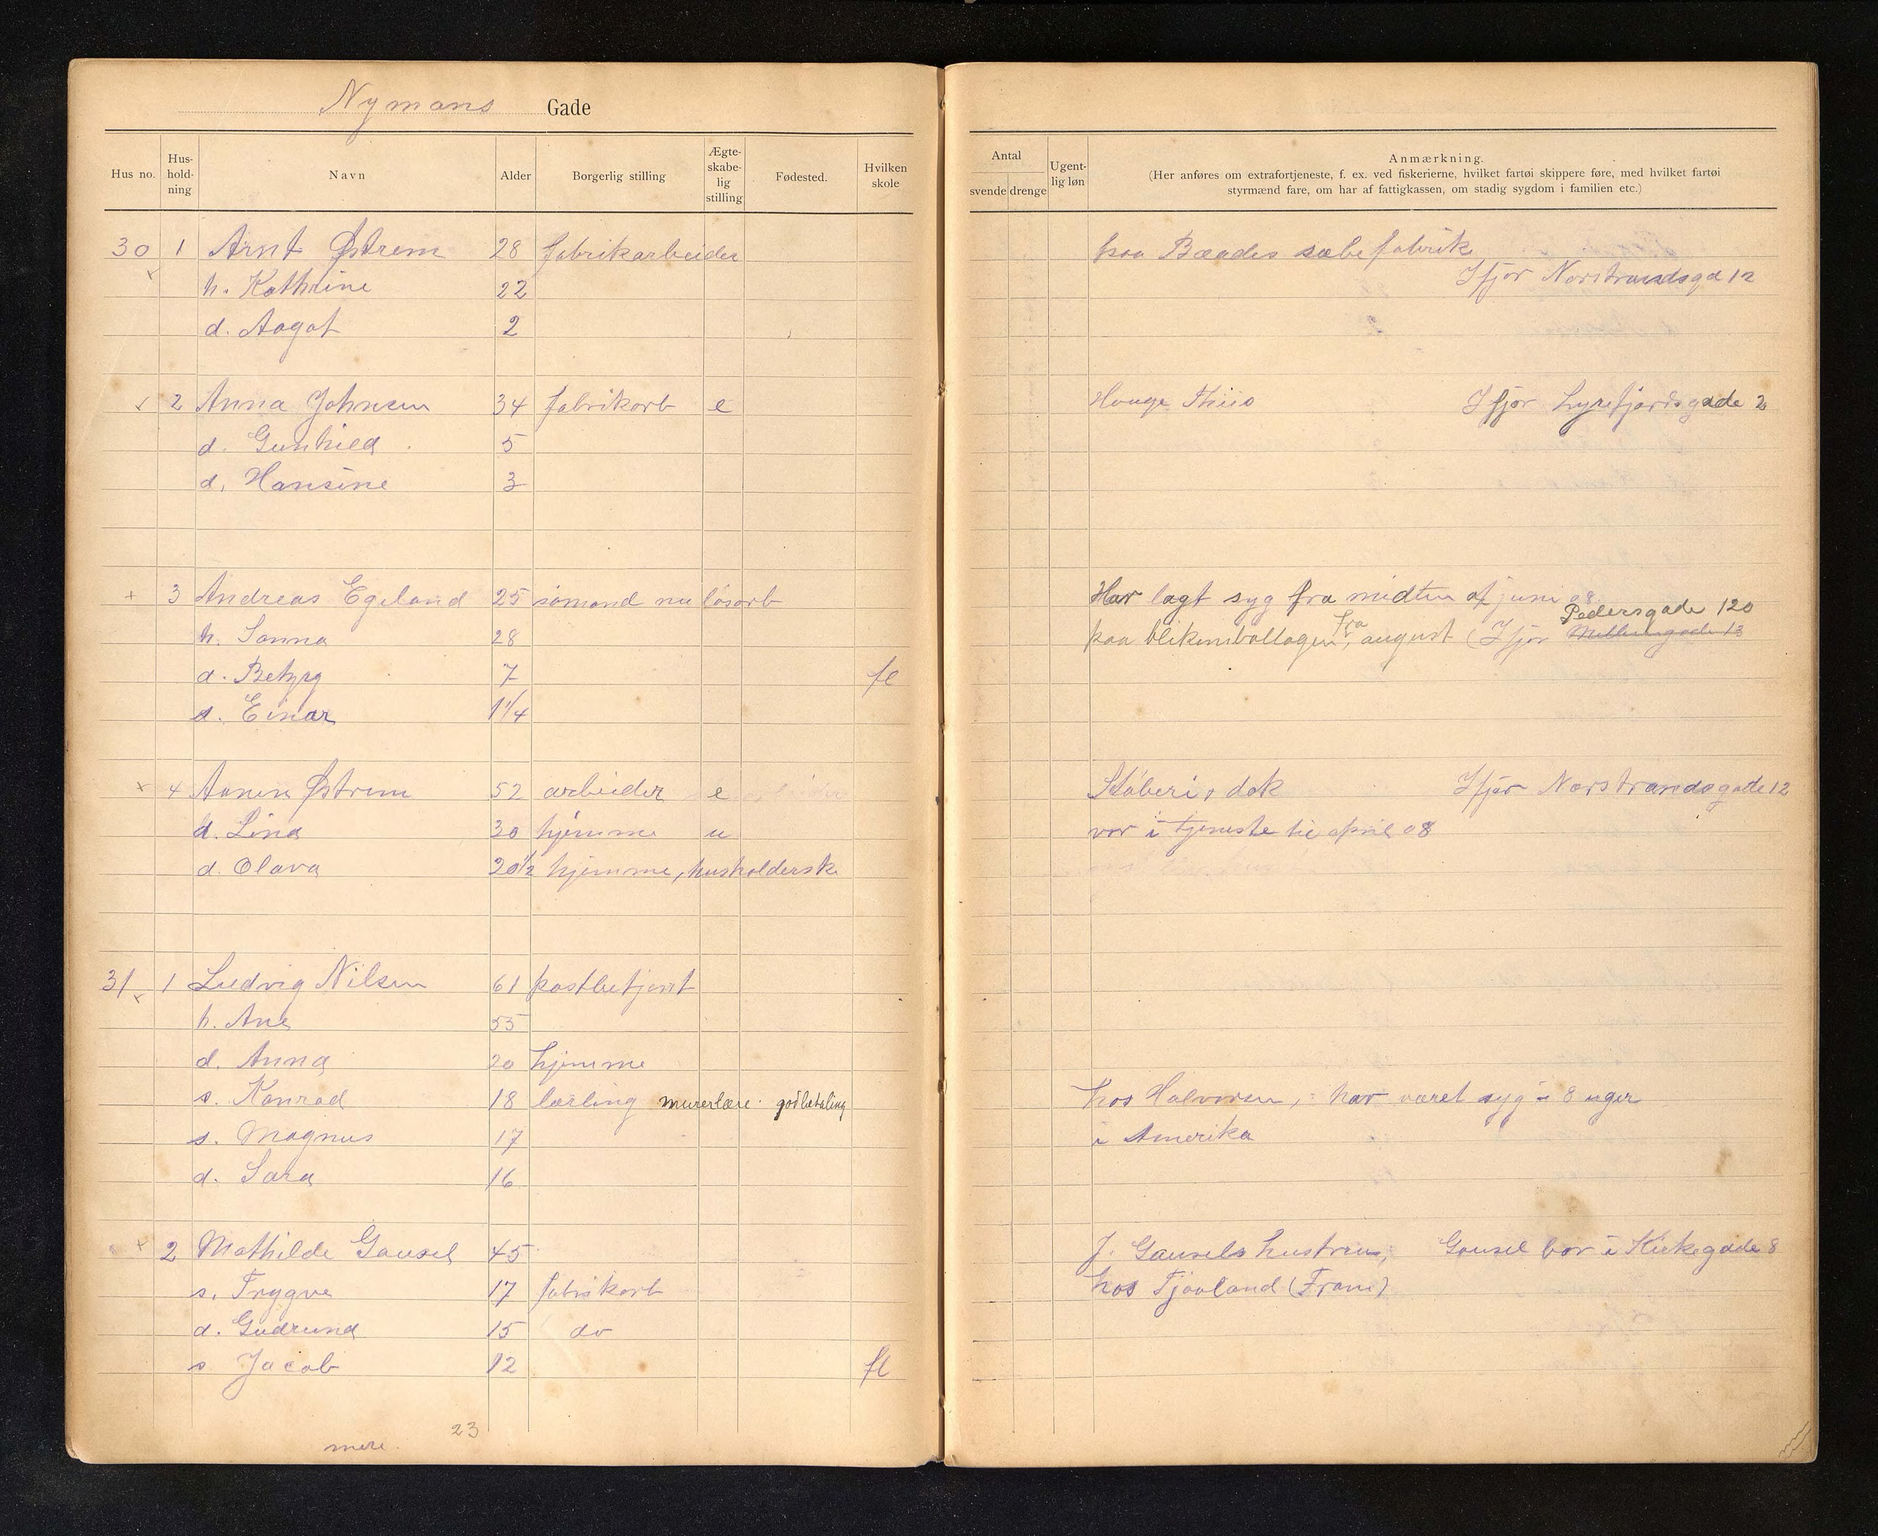 Nymans Gade
Hus no. Hus-hold-ning Navn Alder Borgerlig stilling Ægte-skabe-lig stilling Fødested. Hvilken skole
30 1 Arnt Østrem 28 fabrikarbeider
h. Kathrine 22
d. Aagot 2
2 Anna Johnsen 34 fabrikarb e
d. Gunhild 5
d. Hansine 3
3 Andreas Egeland 25 sømand nu løsarb
h. Sanna 28
d. Betzy 7 fl
s. Einar 1 1/4
4 Østrem 52 arbeider e
d. Lina 30 hjemme u
d. Olava 20 1/2 hjemme, husholdersk
31 1 Ludvig Nilsen 61 postbetjent
h. Ane 55
d. Anna 20 hjemme
s. Konrad 18 lærling murerlære. godbetaling
s. Magnus 17
d. Sara 16
2 Mathilde Gausel 45
s. Trygve 17 fabrikarb
d. Gudrund 15 do
s. Jacob 12 fl
23
mere.
Antal
svende drenge
Ugent-lig løn
Anmærkning.
(Her anføres om extrafortjeneste, f. ex. ved fiskerierne, hvilket fartøi skippere føre, med hvilket fartøi
styrmænd fare, om har af fattigkassen, om stadig sygdom i familien etc.)
paa sæbefabrik
Ifjor Norstrandsgd 12
Hauge Ifjor Lysefjordsgade 2
Har lagt syg fra midten af juni 08.
Pedersgade 120
fra
paa blikemballagen, august (Ifjor
Støberi, dok Ifjor Norstrandsgade 12
var i tjeneste til april 08
hos Halvorsen, har været syg i 8 uger
i Amerika
J. Gausels hustru, Gausel bor i Kirkegade 8
hos Tjaaland (Fram)